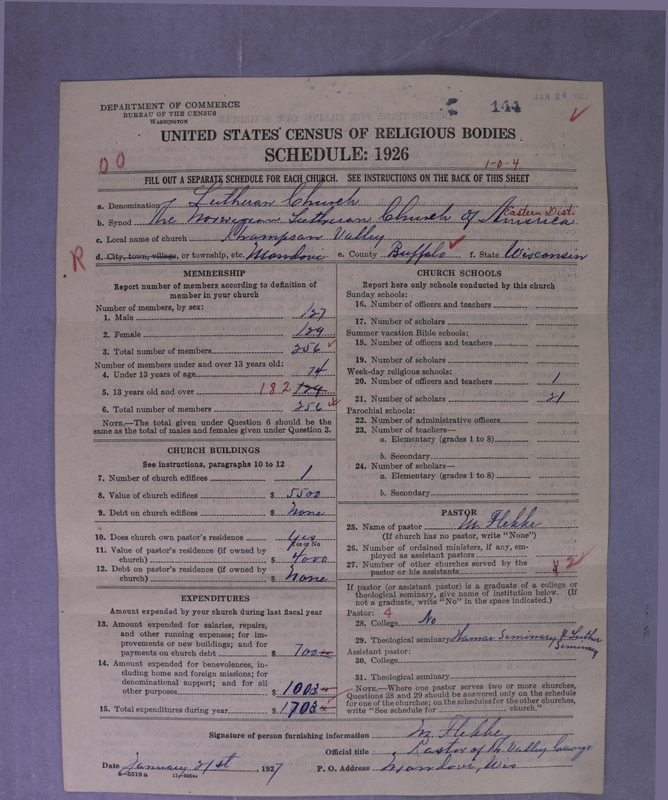 144
DEPARTMENT OF COMMERCE
BUREAU OF THE CENSUS
WASHINGTON
UNITED STATES CENSUS OF RELIGIOUS BODIES
SCHEDULE: 1926
D O
1-0-4
FILL OUT A SEPARATE SCHEDULE FOR EACH CHURCH. SEE INSTRUCTIONS ON THE BACK OF THIS SHEET
a. Denomination Lutheran Church
b. Synod The Norwegian Lutheran Church of America Eastern Dist.
c. Local name of church Thompson Valley
R d. City, town, village, or township, etc. Mondovi e. County Buffalo f. State Wisconsin
MEMBERSHIP
Report number of members according to definition of
member in your church
Number of members, by sex:
1. Male 127
2. Female 129
3. Total number of members 256
Number of members under and over 13 years old:
4. Under 13 years of age 74
5. 13 years old and over 182
6. Total number of members 256
NOTE.—The total given under Question 6 should be
the same as the total of males and females given under Question 3.
CHURCH BUILDINGS
See instructions, paragraphs 10 to 12
7. Number of church edifices 1
8. Value of church edifices $ 5500
9. Debt on church edifices $ None
10. Does church own pastor's residence yes
Yes or No
11. Value of pastor's residence (if owned by
church) $ 4000
12. Debt on pastor's residence (if owned by
church) $ None
EXPENDITURES
Amount expended by your church during last fiscal year
13. Amount expended for salaries, repairs,
and other running expenses; for im-
provements or new buildings; and for
payments on church debt $ 700
14. Amount expended for benevolences, in-
cluding home and foreign missions; for
denominational support; and for all
other purposes $ 1003
15. Total expenditures during year $ 1703
CHURCH SCHOOLS
Report here only schools conducted by this church
Sunday schools:
16. Number of officers and teachers
17. Number of scholars
Summer vacation Bible schools:
18. Number of officers and teachers
19. Number of scholars
Week-day religious schools:
20. Number of officers and teachers 1
21. Number of scholars 21
Parochial schools:
22. Number of administrative officers
23. Number of teachers—
a. Elementary (grades 1 to 8)
b. Secondary
24. Number of scholars—
a. Elementary (grades 1 to 8)
b. Secondary
PASTOR
25. Name of pastor M. Flekke
(If church has no pastor, write "None")
26. Number of ordained ministers, if any, em-
ployed as assistant pastor
27. Number of other churches served by the
pastor or his assistants 2
If pastor (or assistant pastor) is a graduate of a college or
theological seminary, give name of institution below. (If
not a graduate, write "No" in the space indicated.)
Pastor: 4
28. College No
29. Theological seminary Hamar Seminary & Luther
Seminary
Assistant pastor:
30. College
31. Theological seminary
NOTE.—Where one pastor serves two or more churches,
Questions 28 and 29 should be answered only on the schedule
for one of the churches; on the schedules for the other churches,
write "See schedule for church."
Signature of person furnishing information M. Flekke
Official title Pastor of Th. Valley Congr.
Date January 21st, 1927 P. O. Address Mondovi, Wis